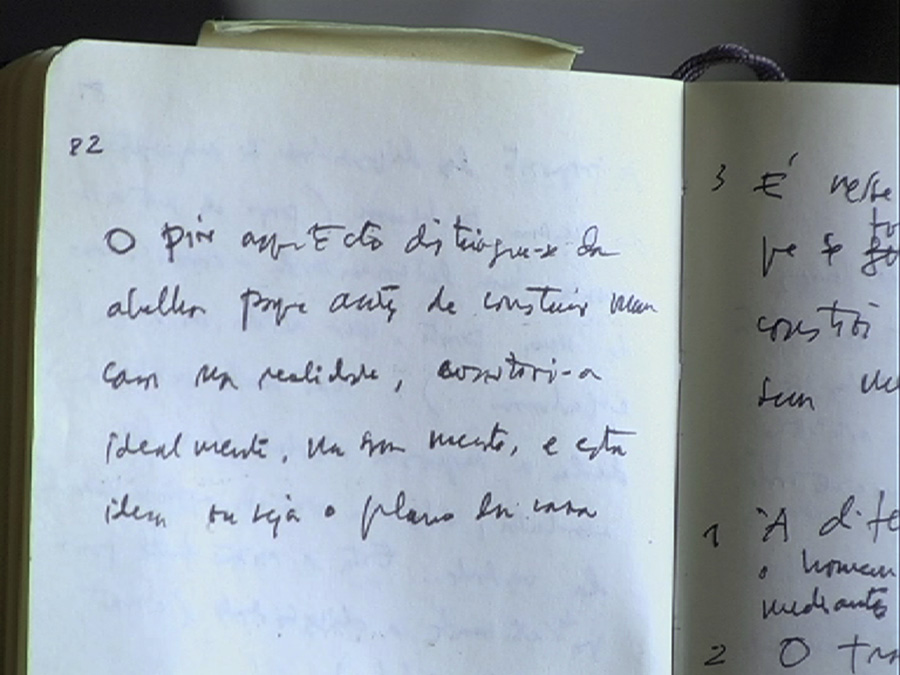 82
O pior arquitecto distingue-se da
abelha porque antes de construir uma
casa na realidade, constroi-a
idealmente, na sua mente, e esta
ideia ou seja o plano da casa
3 É nesse
que se
constrói
sem
1 A dife
o homem
mediante
2 O tra